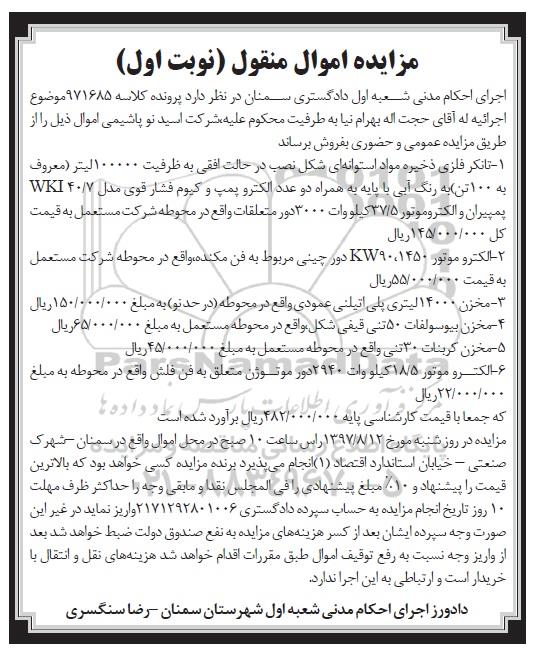 مزایده اموال منقول (نوبت اول)
اجرای احکام مدنی شعبه اول دادگستری سمنان در نظر دارد پرونده کلاسه ۹۷۱۶۸۵موضوع
اجرائیه له آقای حجت اله بهرام نیا به طرفیت محکوم علیه،شرکت اسید نو پاشیمی اموال ذیل را از
طریق مزایده عمومی و حضوری بفروش برساند
۱-تانکر فلزی ذخیره مواد استوانه‌ای شکل نصب در حالت افقی به ظرفیت ۱۰۰۰۰۰لیتر (معروف
به ۱۰۰تن)به رنگ آبی با پایه به همراه دو عدد الکترو پمپ و کیوم فشار قوی مدل WKI ۴۰/۷
پمپیران و الکتروموتور ۳۷/۵کیلو وات ۳۰۰۰دور متعلقات واقع در محوطه شرکت مستعمل به قیمت
کل ۱۴۵/۰۰۰/۰۰۰ریال
۲-الکترو موتور KW۹۰،۱۴۵۰ دور چینی مربوط به فن مکنده،واقع در محوطه شرکت مستعمل
به قیمت ۵۵/۰۰۰/۰۰۰ریال
۳-مخزن ۱۴۰۰۰لیتری پلی اتیلنی عمودی واقع در محوطه (در حد نو) به مبلغ ۱۵۰/۰۰۰/۰۰۰ریال
۴-مخزن بیوسولفات ۵۰تنی قیفی شکل،واقع در محوطه مستعمل به مبلغ ۶۵/۰۰۰/۰۰۰ریال
۵-مخزن کربنات ۳۰تنی واقع در محوطه مستعمل به مبلغ ۴۵/۰۰۰/۰۰۰ریال
۶-الکترو موتور ۱۸/۵کیلو وات ۲۹۴۰دور موتوژن متعلق به فن فلش واقع در محوطه به مبلغ
۲۲/۰۰۰/۰۰۰ریال
که جمعا با قیمت کارشناسی پایه ۴۸۲/۰۰۰/۰۰۰ریال برآورد شده است
مزایده در روز شنبه مورخ ۱۳۹۷/۸/۱۲راس ساعت ۱۰ صبح در محل اموال واقع در سمنان –شهرک
صنعتی – خیابان استاندارد اقتصاد (۱)انجام می‌پذیرد برنده مزایده کسی خواهد بود که بالاترین
قیمت را پیشنهاد و ۱۰٪ مبلغ پیشنهادی را فی المجلس نقدا و مابقی وجه را حداکثر ظرف مهلت
۱۰ روز تاریخ انجام مزایده به حساب سپرده دادگستری ۲۱۷۱۲۹۲۸۰۱۰۰۶واریز نماید در غیر این
صورت وجه سپرده ایشان بعد از کسر هزینه‌های مزایده به نفع صندوق دولت ضبط خواهد شد بعد
از واریز وجه نسبت به رفع توقیف اموال طبق مقررات اقدام خواهد شد هزینه‌های نقل و انتقال با
خریدار است و ارتباطی به این اجرا ندارد.
دادورز اجرای احکام مدنی شعبه اول شهرستان سمنان –رضا سنگسری
ParsNamadData